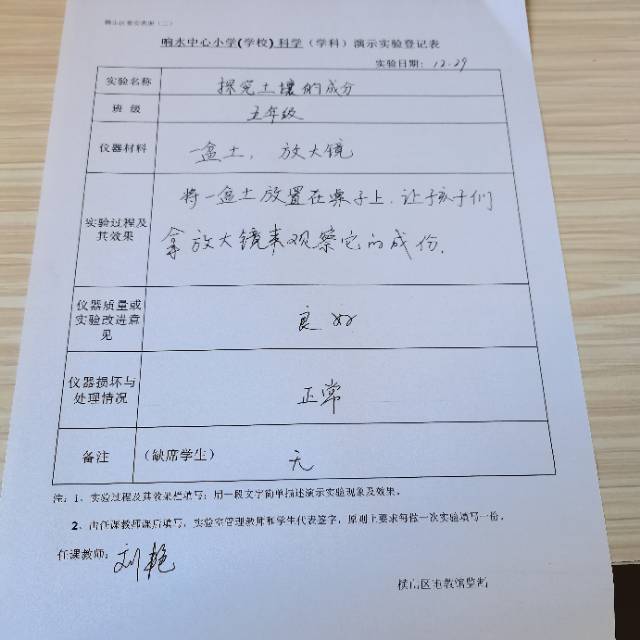 响水中心小学(学校)科学(学科)演示实验登记表
实验日期：12.29
实验名称 探究土壤的成分
班 级 五年级
仪器材料 一盒土，放大镜
实验过程及其效果
将一盒土放置在桌子上，让孩子们
拿放大镜来观察它的成份.
仪器质量或实验改进意见 良好
仪器损坏与处理情况 正常
备注 (缺席学生) 无
注：1、实验过程及其效果栏填写：用一段文字简单描述演示实验现象及效果。
2、由任课教师课后填写，实验室管理教师和学生代表签字，原则上要求每做一次实验填写一份。
任课教师：刘艳
横山区电教馆监制